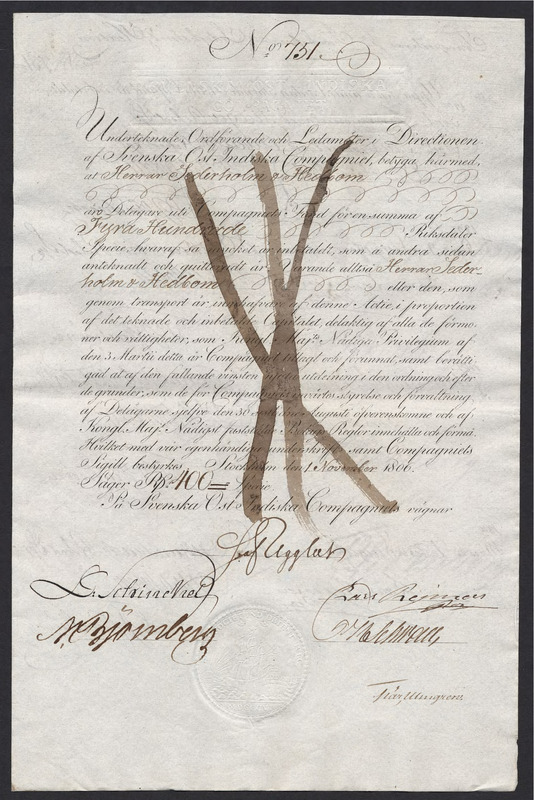 No 751.
Undertecknade, Ordförande och Ledamöter i Directionen
af Svenska Ost Indiska Compagniet, betyga härmed,
at Herrar Sederholm & Hedbom
äro Delägare uti Compagniets Fond för en summa af
Fyra Hundrade Riksdaler
Specie, hvaraf så mycket är inbetaldt, som å andra sidan
anteknadt och quitteradt är, varande alltså Herrar Seder-
holm & Hedbom eller den, som
genom transport är innehafvare af denne Actie, i proportion
af det teknade och inbetalde Capitalet, delaktig af alla de förmo-
ner och rättigheter, som Kongl. Maj:ts Nådiga Privilegium af
den 3 Martii detta år Compagniet tillagt och förunnat, samt berätti-
gad at af den fallande vinsten njuta utdelning i den ordning och efter
de grunder, som de för Compagniets styrelse och förvaltning
af Delägarne sjelfve den 30 Augusti öfverenskomne och af
Kongl. Maj:t Nådigst faststälde Regler innehålla och förmå.
Hvilket med vår egenhändiga underskrift samt Compagniets
Sigill bestyrkes. Stockholm den 1 November 1806.
Säger Rd 400 = Specie.
På Svenska Ost Indiska Compagniets vägnar
af Ugglas
Schinckel
Lars Reimers
N. Björnberg